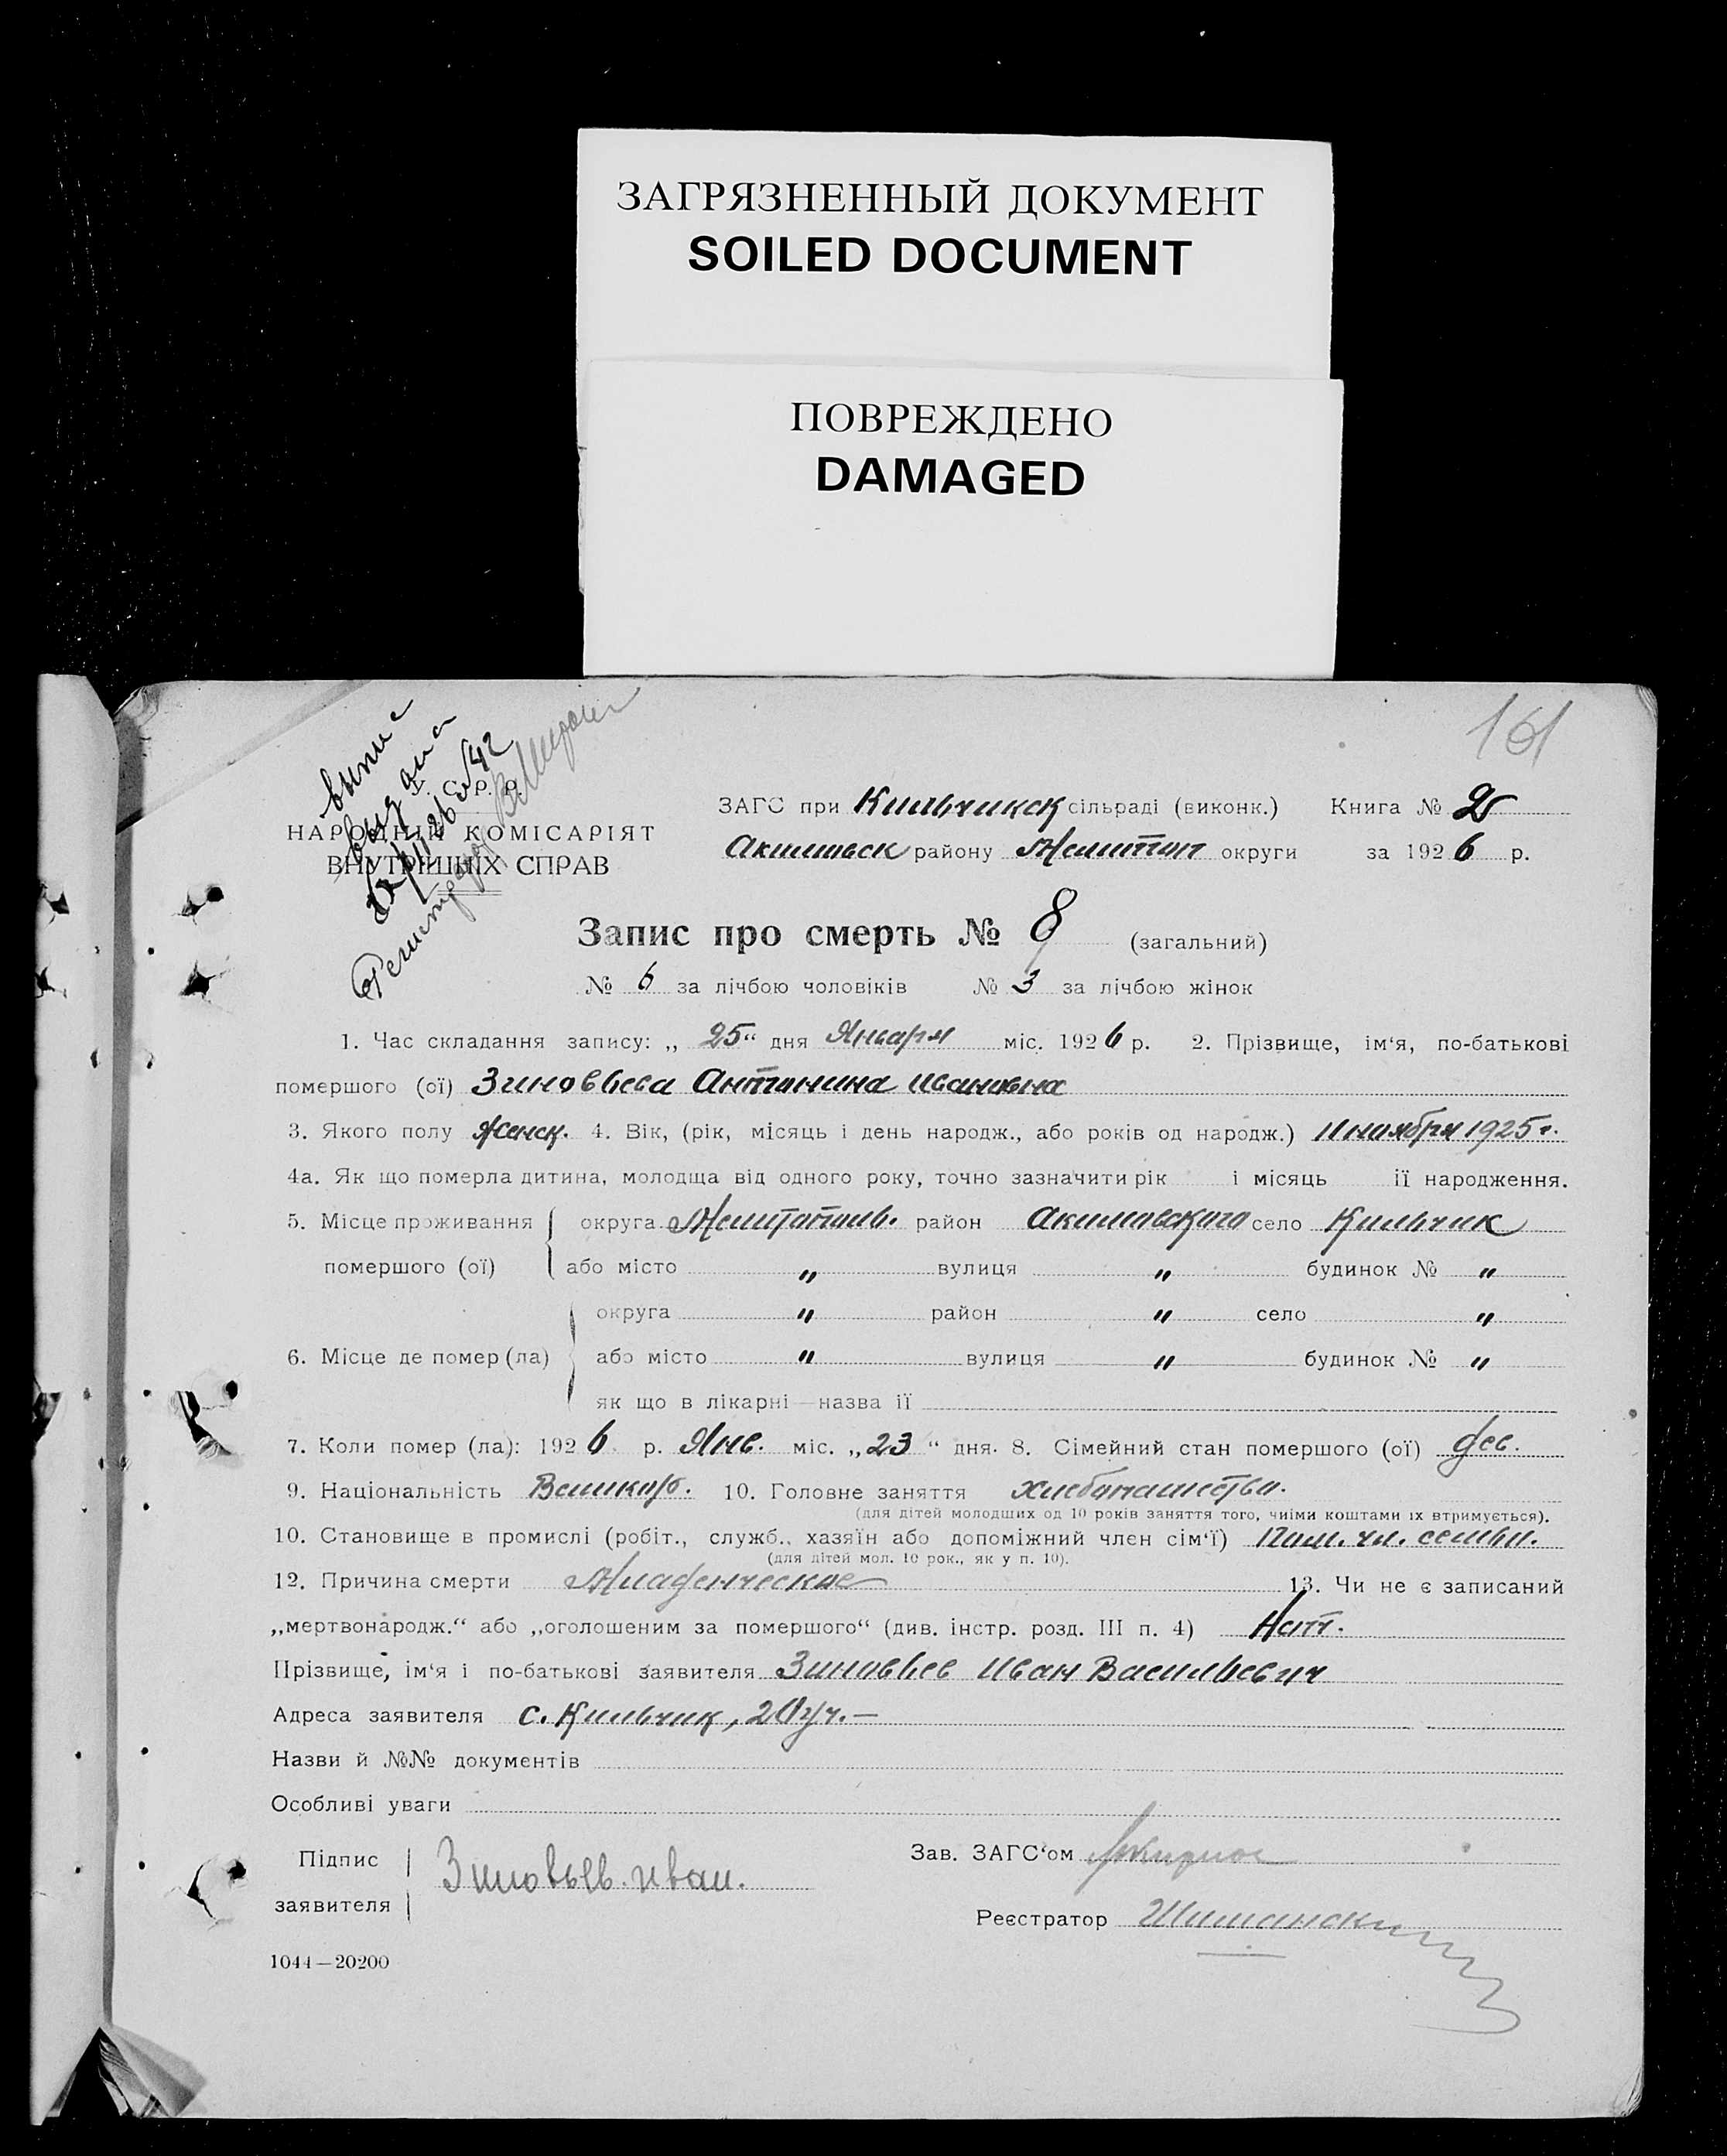 ЗАГРЯЗНЕННЫЙ ДОКУМЕНТ
SOILED DOCUMENT
ПОВРЕЖДЕНО
DAMAGED
161
выпис
выдана
26/I 26 №42
Регистратор
У. С. Р. Р.
НАРОДНІЙ КОМІСАРІЯТ
ВНУТРІШНІХ СПРАВ
ЗАГС при Кильчикск сільраді (виконк.) Книга № 2
Акимовск району Мелитоп округи за 1926 р.
Запис про смерть № 8 (загальний)
№ 6 за лічбою чоловіків № 3 за лічбою жінок
1. Час складання запису: „ 25“ дня Января міс. 1926 р. 2. Прізвище, ім‘я, по-батькові
помершого (ої) Зиновьева Антонина Ивановна
3. Якого полу Женск. 4. Вік, (рік, місяць і день народж., або років од народж.) 11 ноября 1925 г.
4а. Як що померла дитина, молодща від одного року, точно зазначити рік і місяць її народження.
5. Місце проживання округа Мелитополь. район Акимовского село Кильчик
помершого (ої) або місто „ вулиця „ будинок № „
округа „ район „ село „
6. Місце де помер (ла) або місто „ вулиця „ будинок № „
як що в лікарні—назва її
7. Коли помер (ла): 1926 р. Янв. міс. „23“ дня. 8. Сімейний стан помершого (ої) дев.
9. Національність Великор. 10. Головне заняття хлебопашество.
(для дітей молодших од 10 років заняття того, чиїми коштами їх втримується).
10. Становище в промислі (робіт., служб., хазяїн або допоміжний член сім‘ї) Пом. чл. семьи.
(для дітей мол. 10 рок., як у п. 10).
12. Причина смерти Младенческое 13. Чи не є записаний
„мертвонародж.“ або „оголошеним за помершого“ (див. інстр. розд. III п. 4) Нет.
Прізвище, ім‘я і по-батькові заявителя Зиновьев Иван Васильевич
Адреса заявителя с. Кильчик, 20 уч.—
Назви й №№ документів
Особливі уваги
Підпис Зиновьев. иван. Зав. ЗАГС‘ом
заявителя
Реєстратор
1044—20200